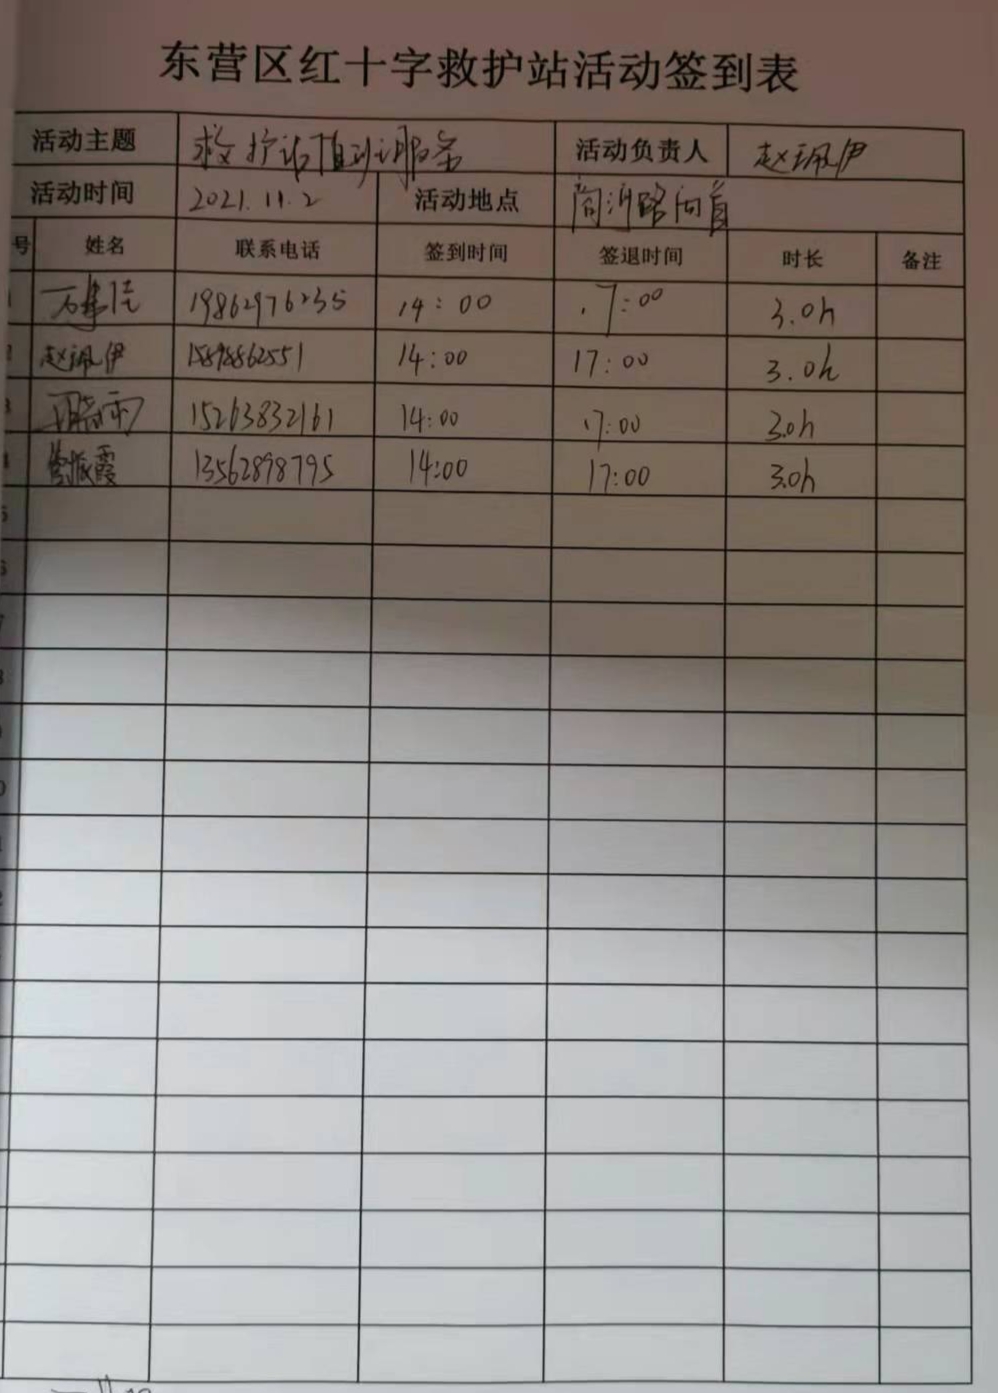 东营区红十字救护站活动签到表
活动主题 救护站值班服务 活动负责人 赵珮伊
活动时间 2021.11.2 活动地点
号 姓名 联系电话 签到时间 签退时间 时长 备注
1 19862976235 14:00 17:00 3.0h
2 赵珮伊 14:00 17:00 3.0h
3 15263832161 14:00 17:00 3.0h
4 曾振霞 13562898795 14:00 17:00 3.0h
5
6
7
8